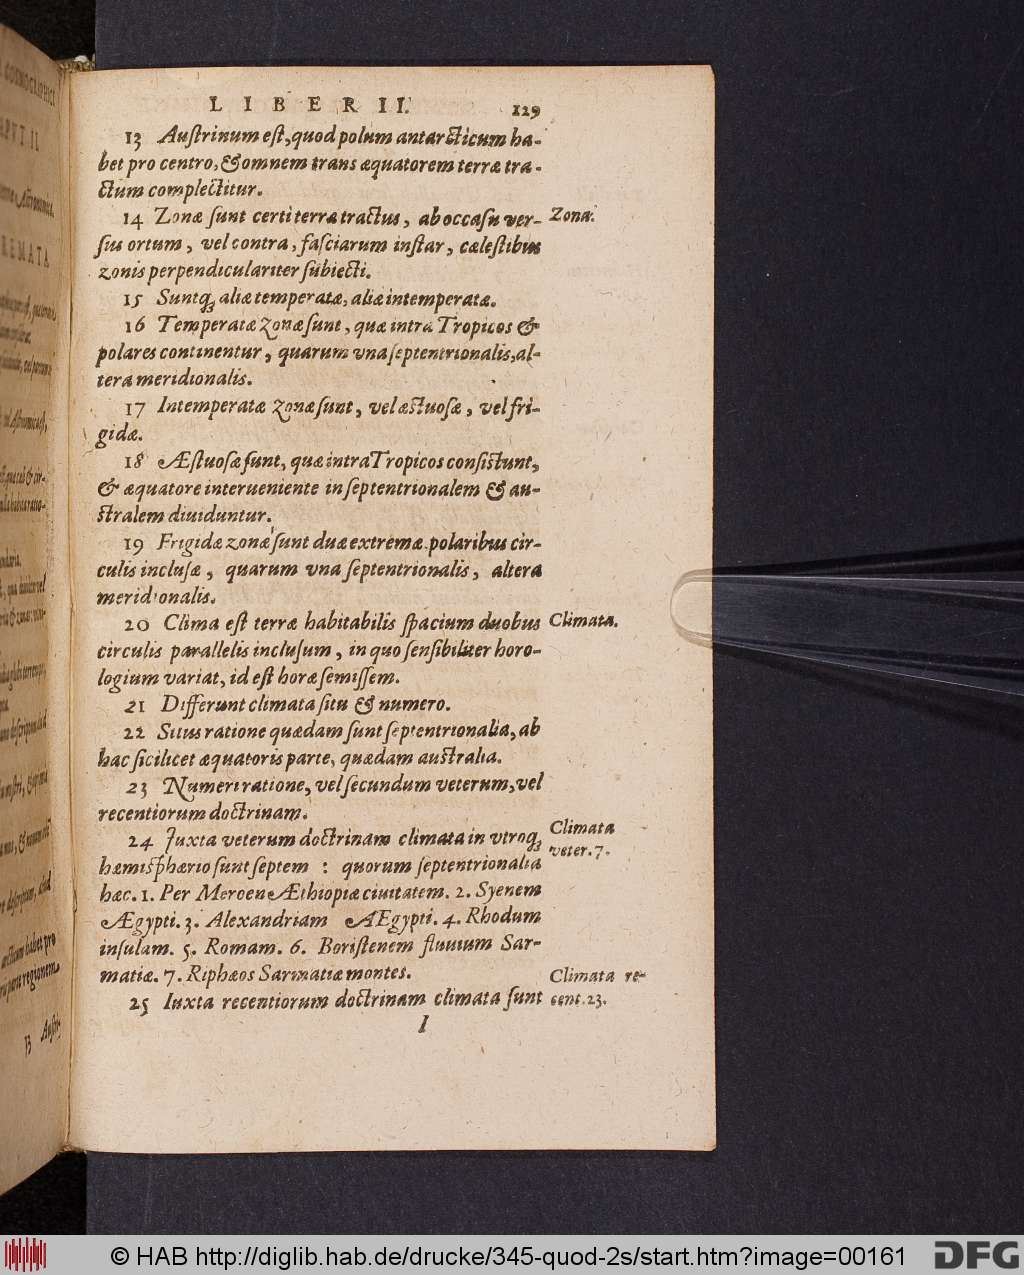 LIBER II. 129
13 Auſtrinum eſt, quod polum antarcticum ha-
bet pro centro, & omnem trans æquatorem terræ tra-
ctum complectitur.
14 Zonæ ſunt certi terræ tractus, ab occaſu ver-
ſus ortum, vel contra, faſciarum inſtar, cæleſtibus
zonis perpendiculariter ſubiecti.
Zonæ.
15 Suntq; aliæ temperatæ, aliæ intemperatæ.
16 Temperatæ zonæ ſunt, quæ intra Tropicos &
polares continentur, quarum vna ſeptentrionalis, al-
tera meridionalis.
17 Intemperatæ zonæ ſunt, vel æſtuoſæ, vel fri-
gidæ.
18 Æſtuoſæ ſunt, quæ intra Tropicos conſiſtunt,
& æquatore interueniente in ſeptentrionalem & au-
ſtralem diuiduntur.
19 Frigidæ zonæ ſunt duæ extremæ polaribus cir-
culis incluſæ, quarum vna ſeptentrionalis, altera
meridionalis.
20 Clima eſt terræ habitabilis ſpacium duobus
circulis parallelis incluſum, in quo ſenſibiliter horo-
logium variat, id eſt horæ ſemiſſem.
Climata.
21 Differunt climata ſitu & numero.
22 Situs ratione quædam ſunt ſeptentrionalia, ab
hac ſicilicet æquatoris parte, quædam auſtralia.
23 Numeri ratione, vel ſecundum veterum, vel
recentiorum doctrinam.
24 Juxta veterum doctrinam climata in vtroq;
hæmiſphærio ſunt ſeptem : quorum ſeptentrionalia
hæc. 1. Per Meroen Æthiopiæ ciuitatem. 2. Syenem
Ægypti. 3. Alexandriam AEgypti. 4. Rhodum
inſulam. 5. Romam. 6. Boriſtenem fluuium Sar-
matiæ. 7. Riphæos Sarmatiæ montes.
Climata
veter. 7.
25 Iuxta recentiorum doctrinam climata ſunt
Climata re-
cent. 23.
I
© HAB http://diglib.hab.de/drucke/345-quod-2s/start.htm?image=00161
DFG